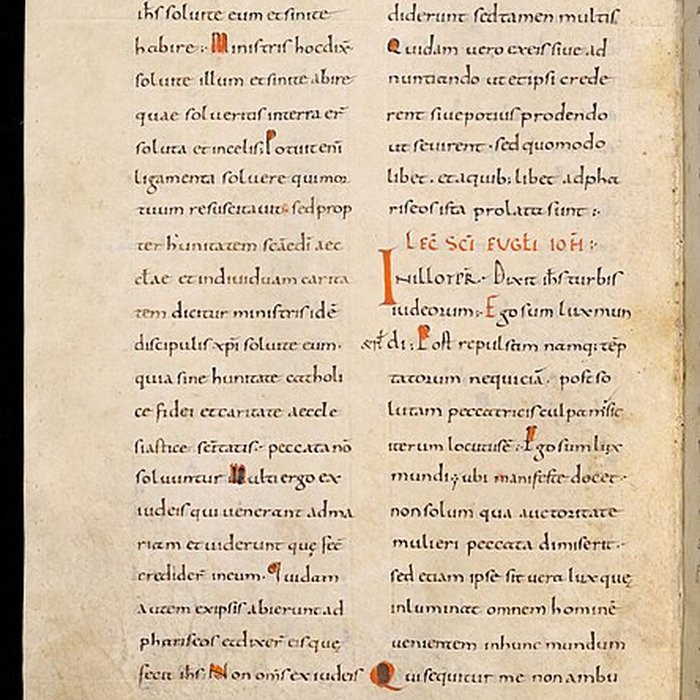 ih̄s soluite eum et sinite
habire :· Ministris hoc dix̄
soluite illum et sinite abire
quae solueritis in terra er̄
soluta et in celis; Potuit eni
ligamenta soluere qui mor
tuum resuscitauit· sed prop
ter h'unitatem scāe d̄i aec
cl̄ae et indiuiduam carita
tem dicitur ministris id ē
discipulis xp̄i soluite eum·
quia sine hunitate catholi
ce fidei et caritate aeccle
siastice peccata nō
soluuntur Multi ergo ex
iudeis qui uenerant ad ma
riam et uiderunt quę fec̄
credider̄ in eum· Quidam
autem ex ipsis abierunt ad
phariseos et dixer̄ eis quę
fecit ih̄s Non om̄s ex iudeis
diderunt sed tamen multis
Quidam uero ex eis siue ad
nuntiando ut et ipsi crede
rent siue potius prodendo
ut seuirent· sed quomodo
libet· et a quib; libet ad pha
riseos ista prolata sunt :·
LEC̄ SC̄I EUGL̄I IOH̄ :·
IN ILLO TP̄R· Dixit ih̄s turbis
iudeorum :· Ego sum lux mun
di :· Post repulsam namq; tēp
tatorum nequiciā· post so
lutam peccatricis culpam
iterum locutus ē :· Ego sum lux
mundi; ubi manifeste docet·
non solum qua auctoritate
mulieri peccata dimiserit·
sed etiam ipse sit uera lux quę
inluminat omnem hominē
uenientem in hunc mundum
Qui sequitur me non ambu